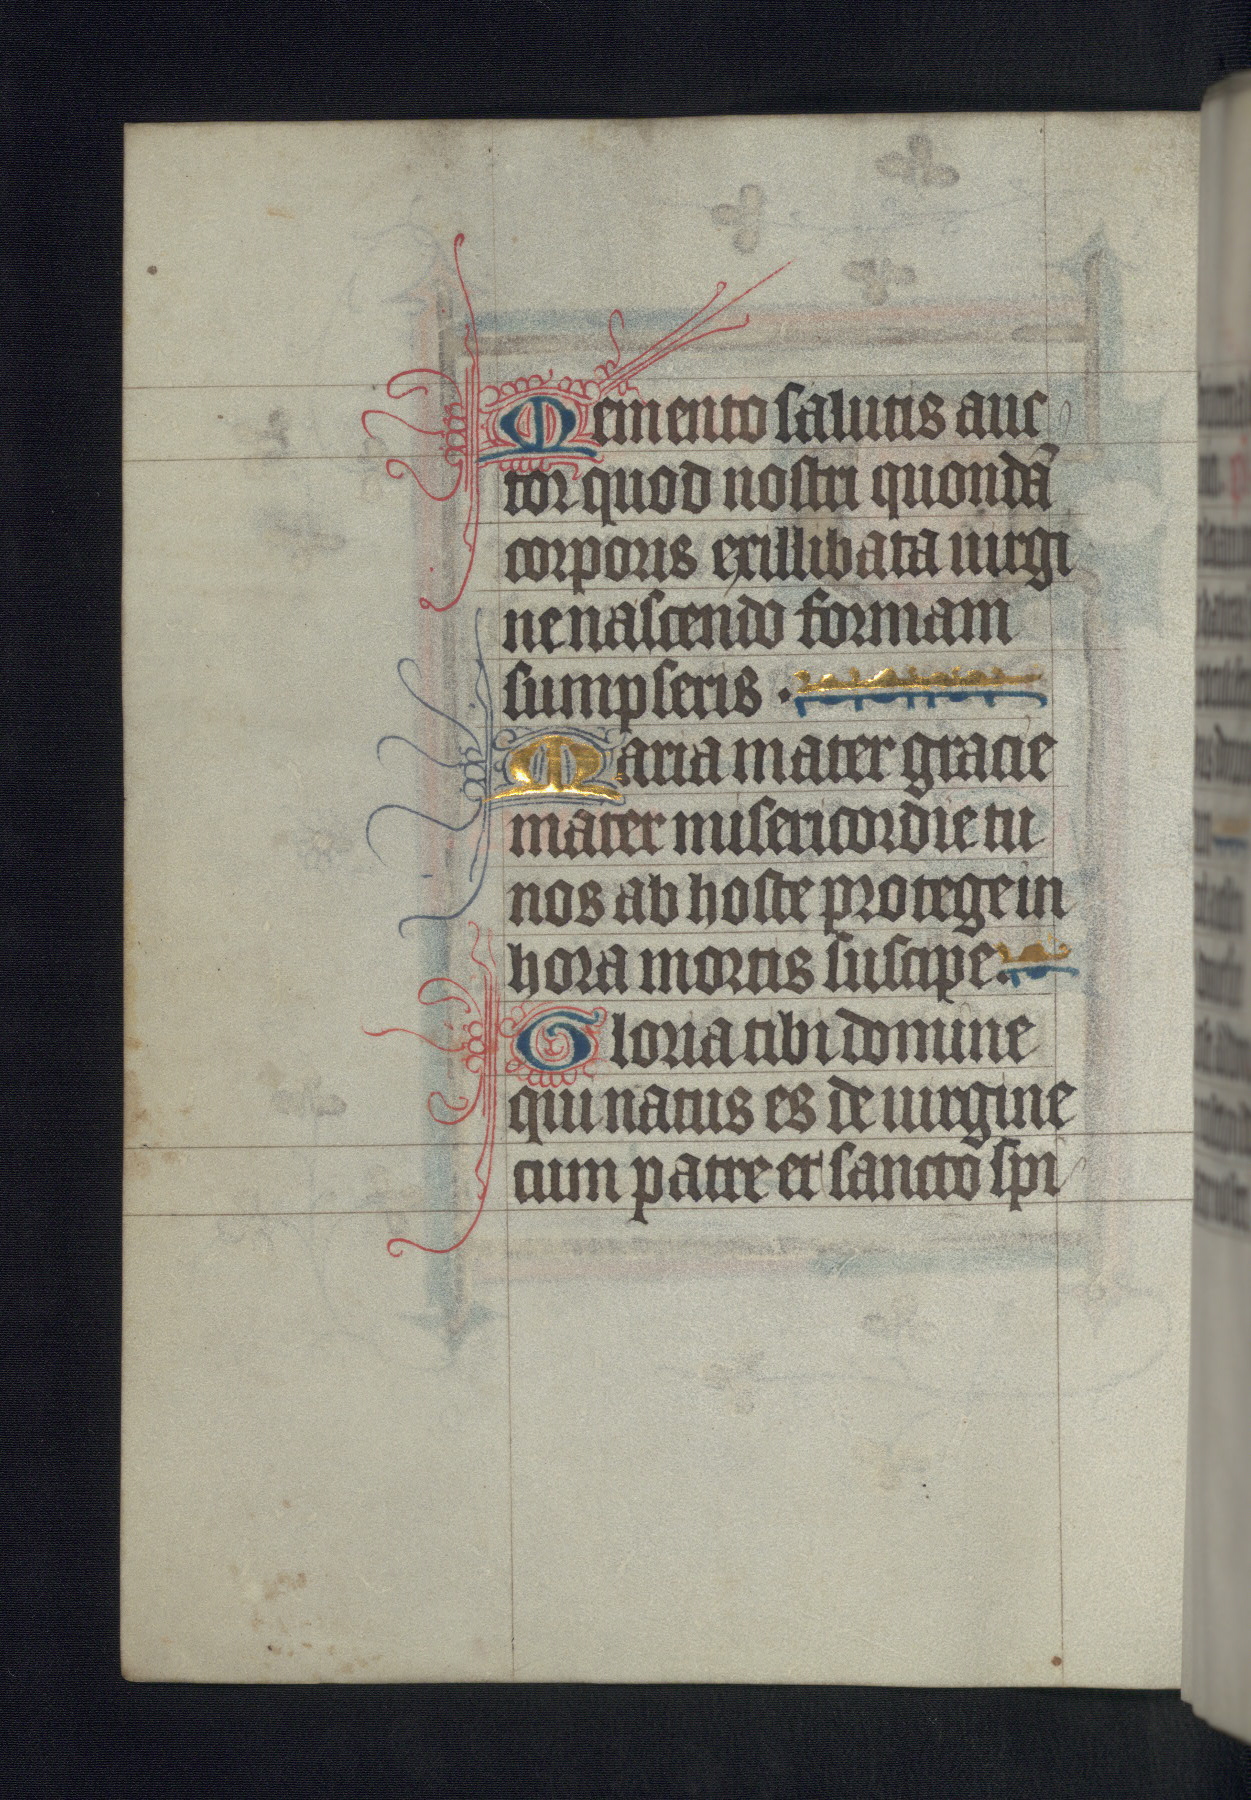 Memento salutis auc
tor quod nostri quondā
corporis exillibata uirgi
ne nascendo formam
sumpseris .
Maria mater gracie
mater misericordie tu
nos ab hoste protege in
hora mortis suscipe.
Gloria tibi domine
qui natus es de uirgine
cum patre et sancto spi